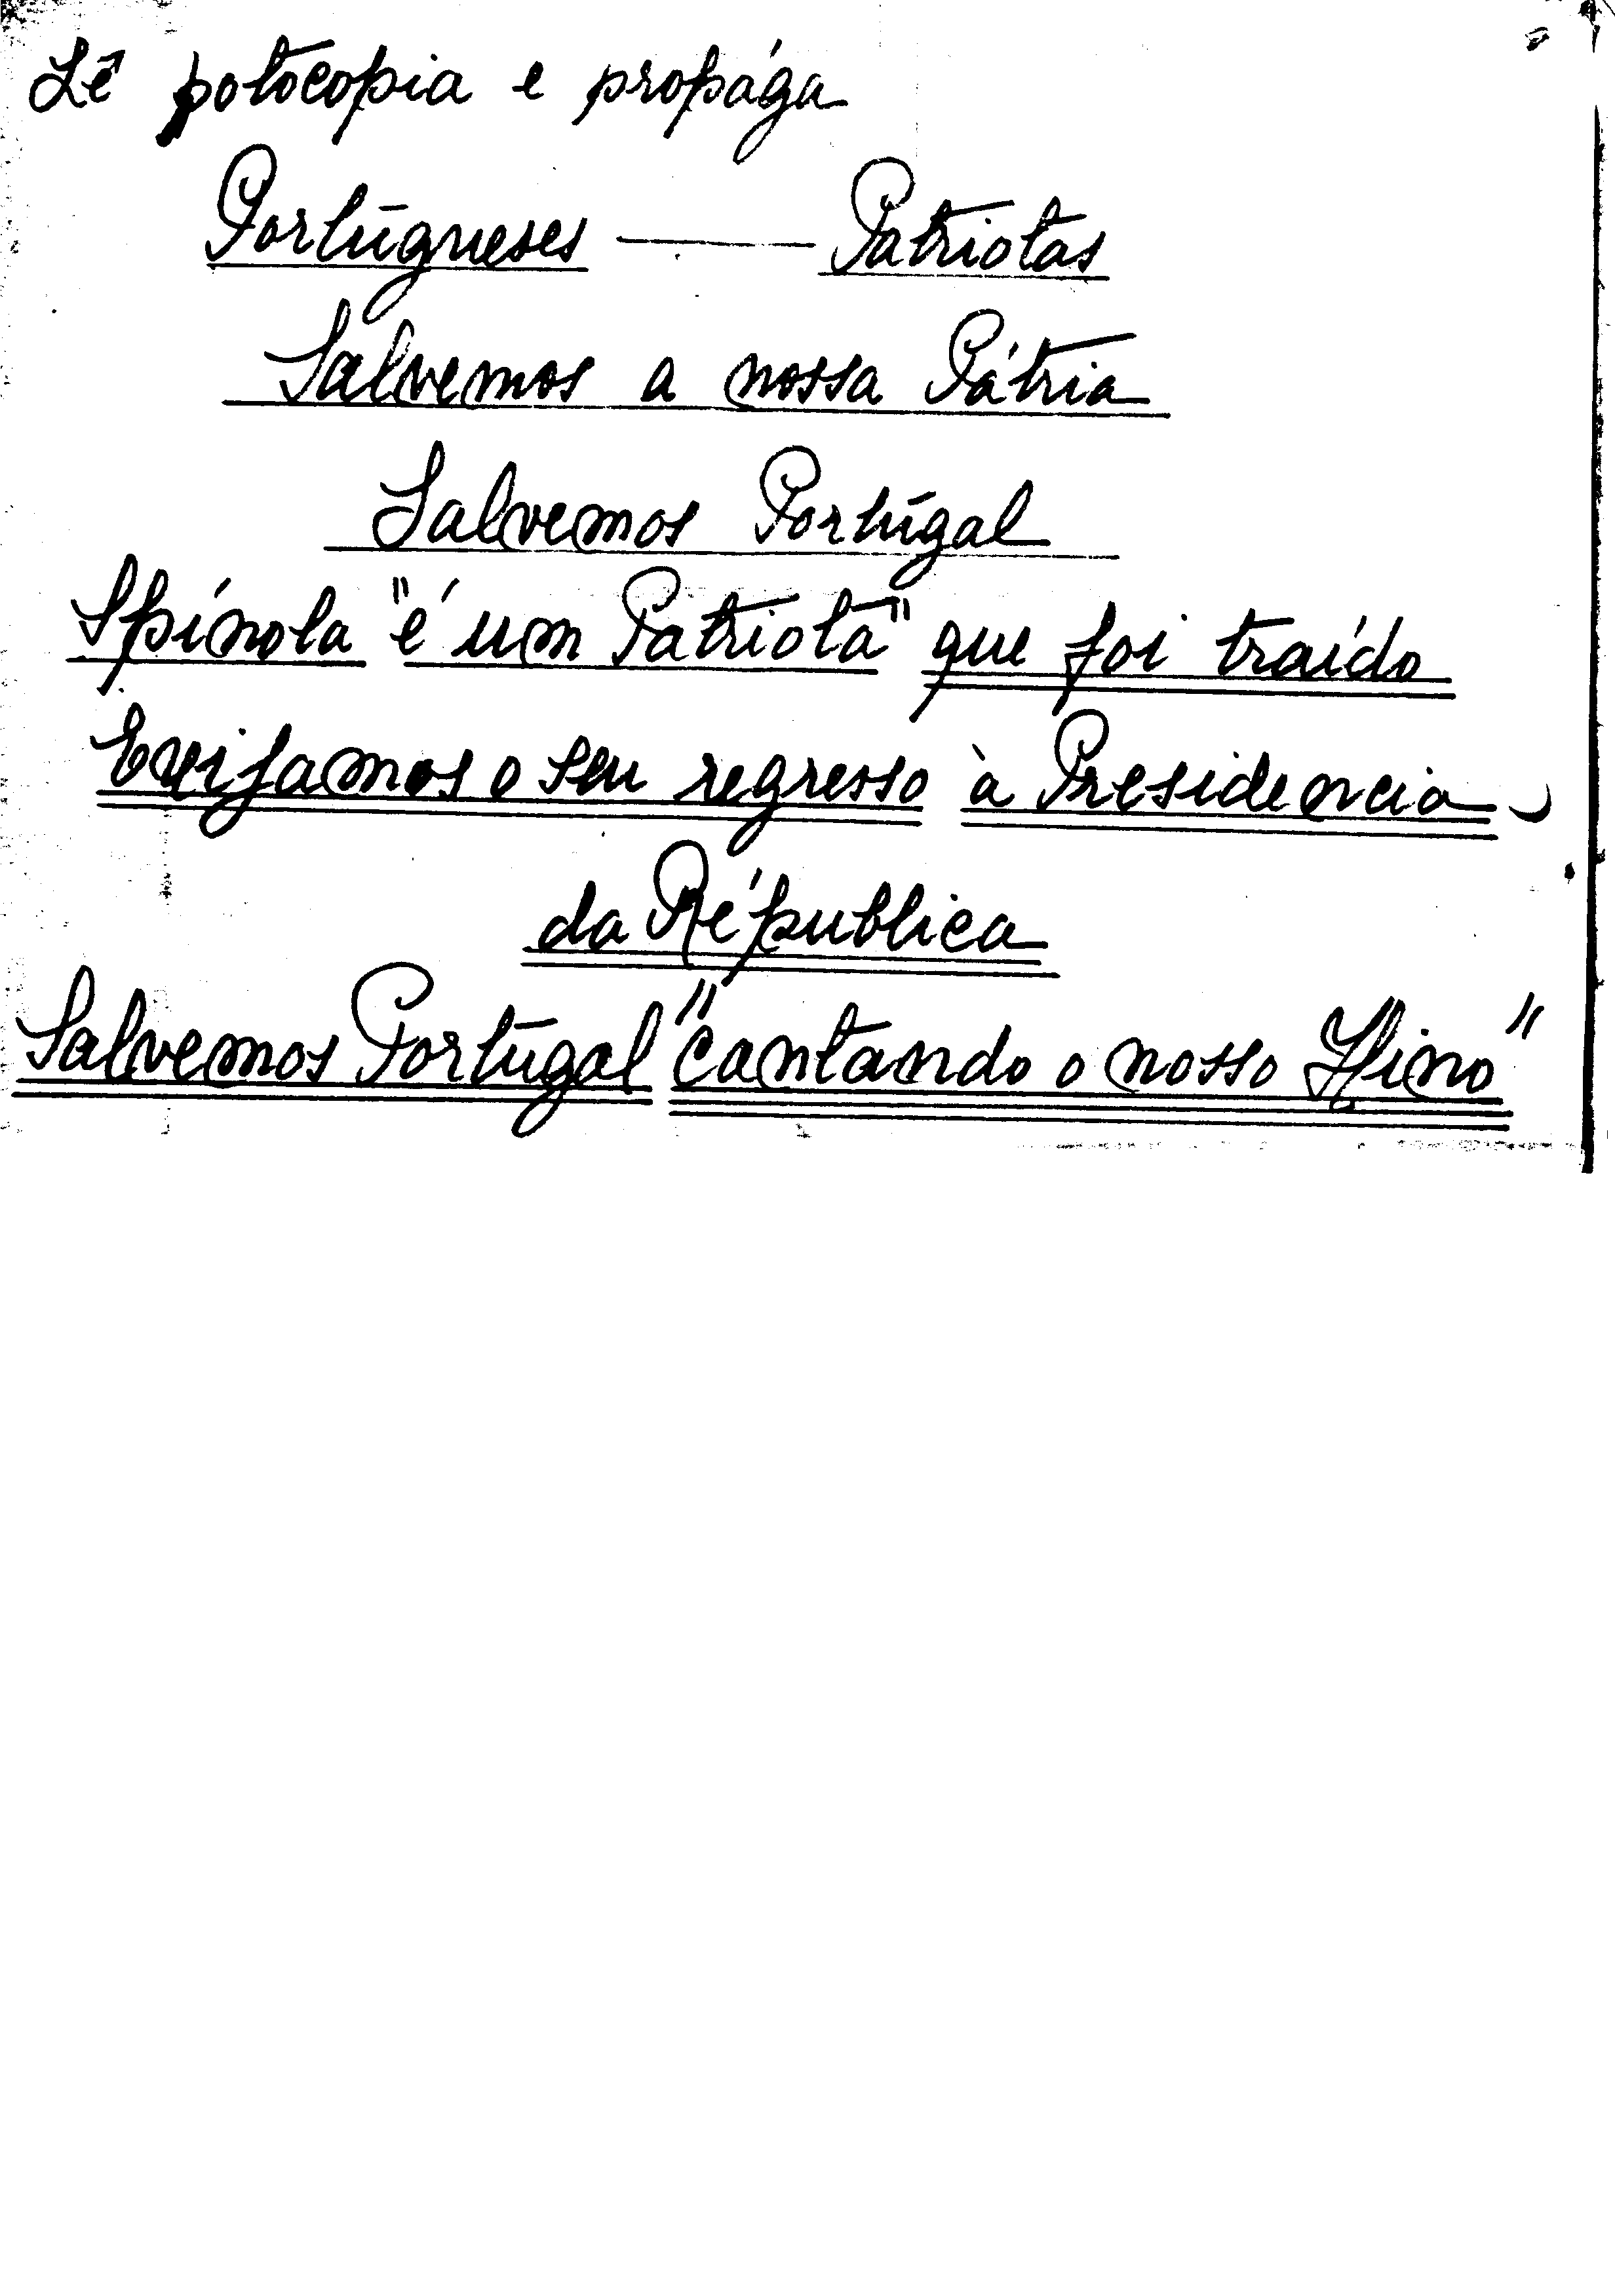 Lê potocopia e propága
Portugueses — Patriotas
Salvemos a nossa Pátria
Salvemos Portugal
Spínola "é um Patriota" que foi traído
Exijamos o seu regresso à Presidencia
da Républica
Salvemos Portugal "cantando o nosso Hino"